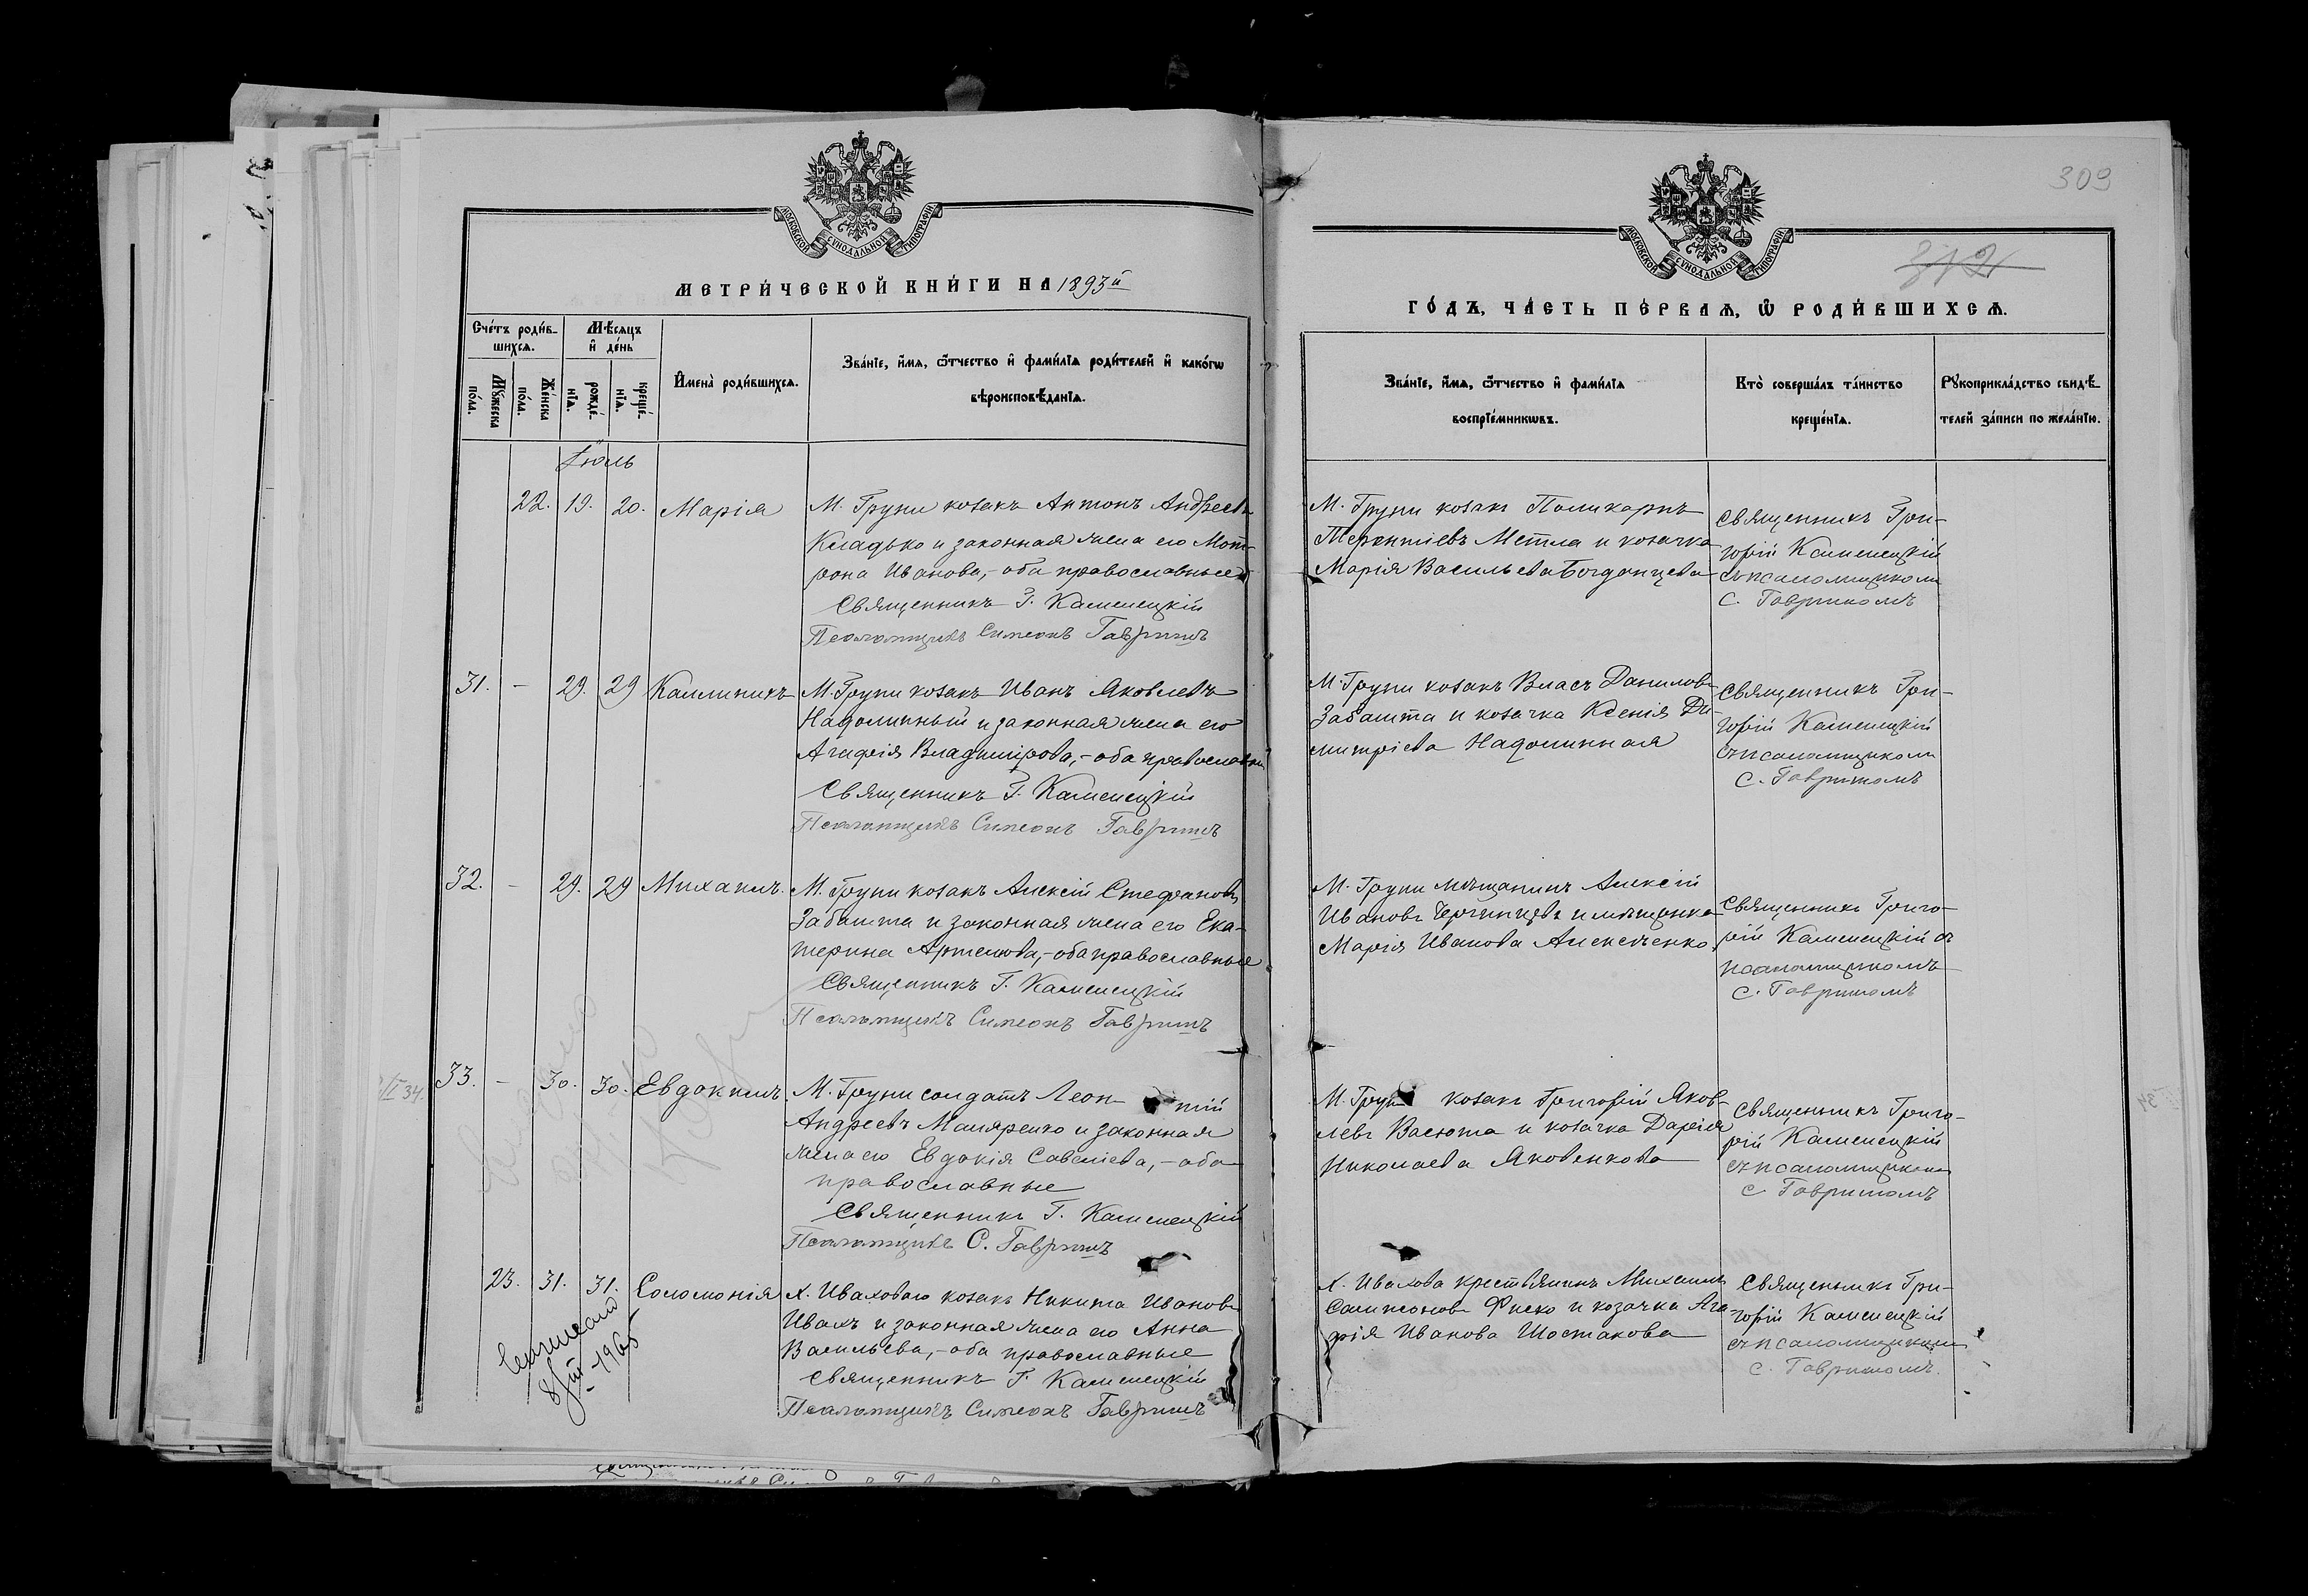 309
МОСКОВСКОЙ СѴНОДАЛЬНОЙ ТИПОГРАФІИ
МЕТРИ́ЧЕСКОЙ КНИ́ГИ НА 1893й
Сче́тъ роди́в-
шихсѧ.
Мѣ́сѧцъ
и҆ де́нь
Мꙋ́жеска
по́ла.
Же́нска
по́ла.
рожде́-
нїѧ.
креще́-
нїѧ.
И҆мена̀ роди́вшихсѧ.
Зва́нїе, и҆́мѧ, ѻ҆́тчество и҆ фами́лїѧ роди́телей и҆ како́гѡ
вѣроисповѣ́данїѧ.
Іюль
22. 19. 20. Марія
М. Груни козакъ Антонъ Андреевъ
Кладько и законная жена его Мот-
рона Иванова,- оба православные
Священникъ Г. Каменецкій
Псаломщикъ Симеонъ Гавришъ
31. - 29. 29 Каллиникъ
М. Груни козакъ Иванъ Яковлевъ
Надолинный и законная жена его
Агафія Владимірова,- оба православны
Священникъ Г. Каменецкій
Псаломщикъ Симеонъ Гавришъ
32. - 29. 29 Михаилъ.
М. Груни козакъ Алексій Стефановъ
Забашта и законная жена его Ека-
терина Артемова,- оба православные
Священникъ Г. Каменецкій
Псаломщикъ Симеонъ Гавришъ
33. - 30. 30. Евдокимъ.
М. Груни солдатъ Леон тій
Андреевъ Маляренко и законная
жена его Евдокія Савеліева,- оба
православные
Священникъ Г. Каменецкій
Псаломщикъ С. Гавришъ
23. 31. 31. Соломонія
Х. Ивахового козакъ Никита Ивановъ
Ивахъ и законная жена его Анна
Васильева,- оба православные
Священникъ Г. Каменецкій
Псаломщикъ Симеонъ Гавришъ
8/III-1965
МОСКОВСКОЙ СѴНОДАЛЬНОЙ ТИПОГРАФІИ
ГО́ДЪ, ЧА́СТЬ ПЕ́РВАѦ, Ѡ҆ РОДИ́ВШИХСѦ.
Зва́нїе, и҆́мѧ, ѻ҆́тчество и҆ фами́лїѧ
воспрїе́мникѡвъ.
Кто̀ соверша́лъ та́инство
креще́нїѧ.
Рꙋкоприкла́дство свидѣ́-
телей за́писи по жела́нїю.
М. Груни козакъ Поликарпъ
Терентіевъ Метла и козачка
Марія Васильева Богданцева
Священникъ Гри-
горій Каменецкій
съ псаломщикомъ
С. Гавришомъ
М. Груни козакъ Власъ Даниловъ
Забашта и козачка Ксенія Ди-
митріева Надолинная
Священникъ Гри-
горій Каменецкій
съ псаломщикомъ
С. Гавришомъ
М. Груни мѣщанинъ Алексій
Ивановъ и мѣщанка
Марія Иванова Алексѣенко
Священникъ Григо-
рій Каменецкій съ
псаломщикомъ
С. Гавришомъ
М. Груни козакъ Григорій Яков-
левъ Васюта и козачка Дарія
Николаева Яковенкова
Священникъ Григо-
рій Каменецкій
съ псаломщикомъ
С. Гавришомъ
Х. Ивахова крестьянинъ Михаилъ
Сампсоновъ Фиско и козачка Ага-
фія Иванова Шостакова
Священникъ Гри-
горій Каменецкій
съ псаломщикомъ
С. Гавришомъ.